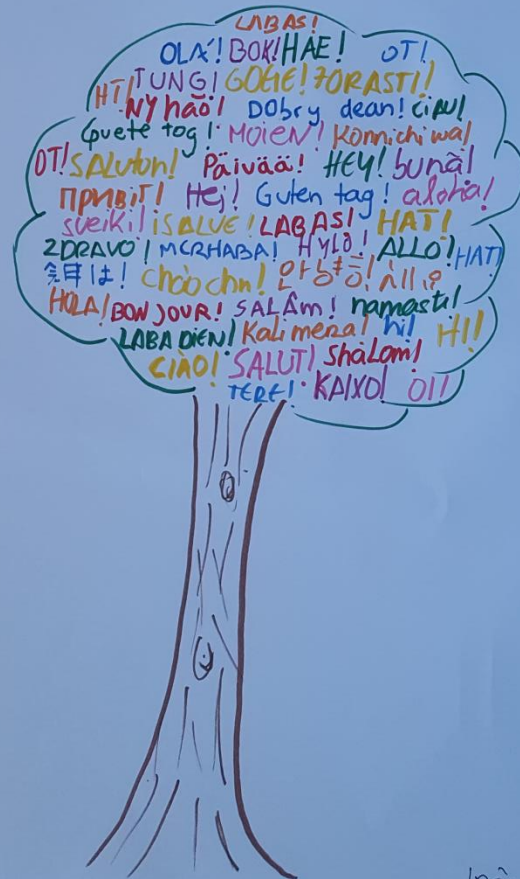 LABAS!
OLÁ! BOK! HAE! OT!
HI! TUNG! GOEIE! ZORASTI!
NY hāo! Dobry dean! CIAU!
Guete tog! MOIEN! Konnichiwa!
OT! SALUton! Päivää! HEY! bună!
ПРИВІТ! Hej! Guten tag! aloha!
sveiki! iSALVE! LABAS! HAT!
ZDRAVO! MERHABA! ALLÓ! HAT!
chào
HOLA! BONJOUR! SALÂM! namaste!
LABA DIEN! Kali mera! hi! HI!
CIAO! SALUT! Shalom!
TERE! KAIXO! OI!